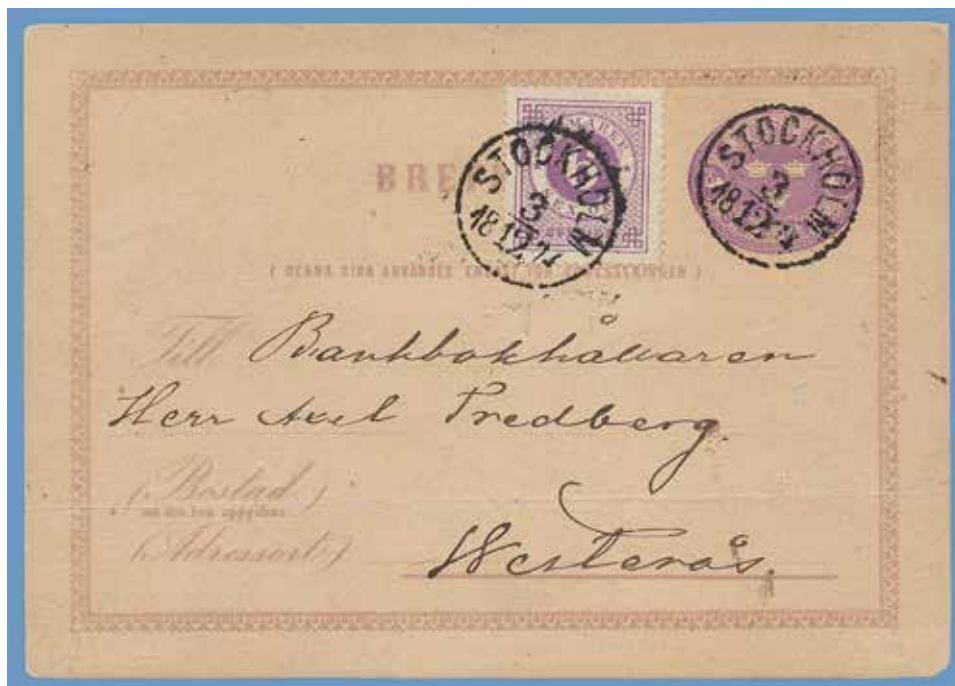 STOCKHOLM
3
18 12 74
STOCKHOLM
3
18 12 74
BRE
( DENNA SIDA ANVÄNDES ENDAST FÖR ADRESSERINGEN )
Till Bankbokhållaren
Herr Axel Fredberg.
(Bostad)
om den kan uppgifvas
(Adressort)
Westerås.